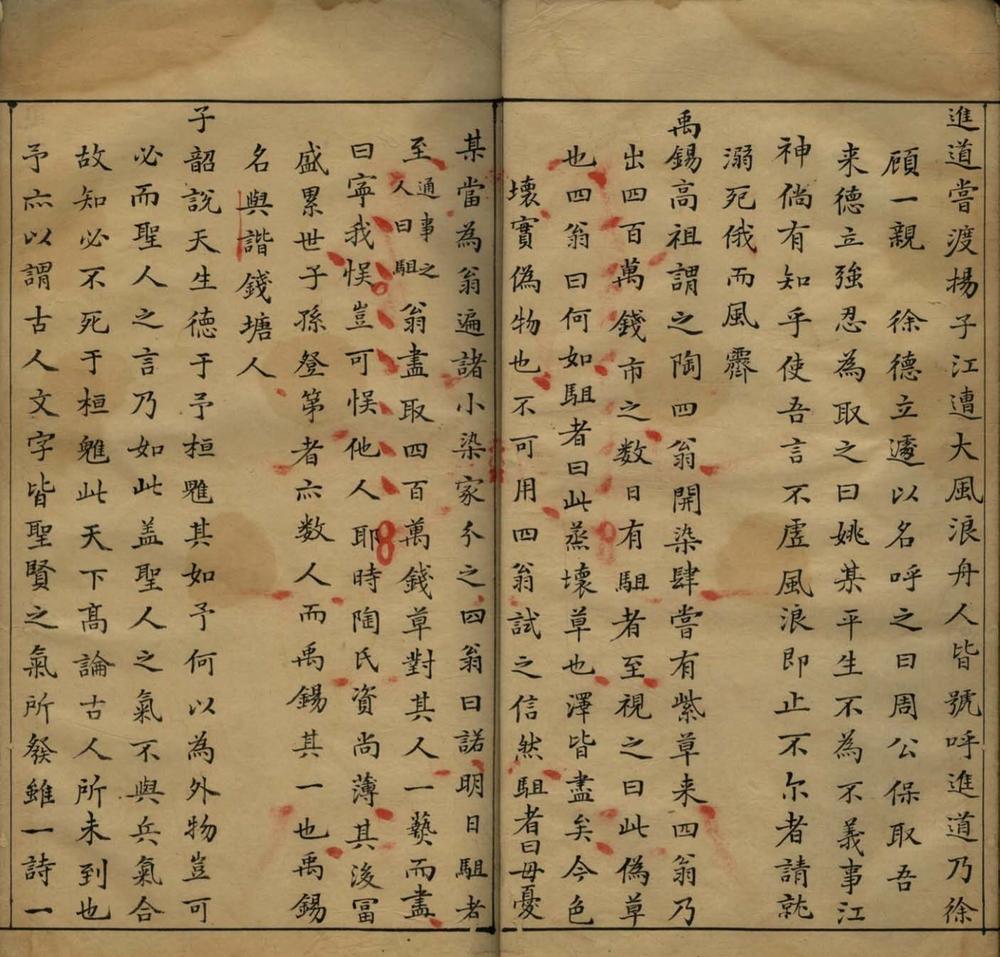 進道嘗渡揚子江遭大風浪舟人皆號呼進道乃徐
顧一親　徐德立遽以名呼之曰周公保取吾
来德立強忍為取之曰姚某平生不為不義事江
神倘有知乎使吾言不虚風浪即止不尔者請就
溺死俄而風霽
禹錫高祖謂之陶四翁開染肆嘗有紫草来四翁乃
出四百萬錢市之数日有駔者至視之曰此偽草
也四翁曰何如駔者曰此蒸壊草也澤皆盡矣今色
壊實偽物也不可用四翁試之信然駔者曰毋憂
某當為翁遍諸小染家分之四翁曰諾明日駔者
至通事之人曰駔翁盡取四百萬錢草對其人一爇而盡
曰寜我悮豈可悮他人耶時陶氏資尚薄其後冨
盛累世子孫登第者亦数人而禹錫其一也禹錫
名與諧錢塘人
子韶說天生德于予桓魋其如予何以為外物豈可
必而聖人之言乃如此盖聖人之氣不與兵氣合
故知必不死于桓魋此天下髙論古人所未到也
予亦以謂古人文字皆聖賢之氣所發雖一詩一